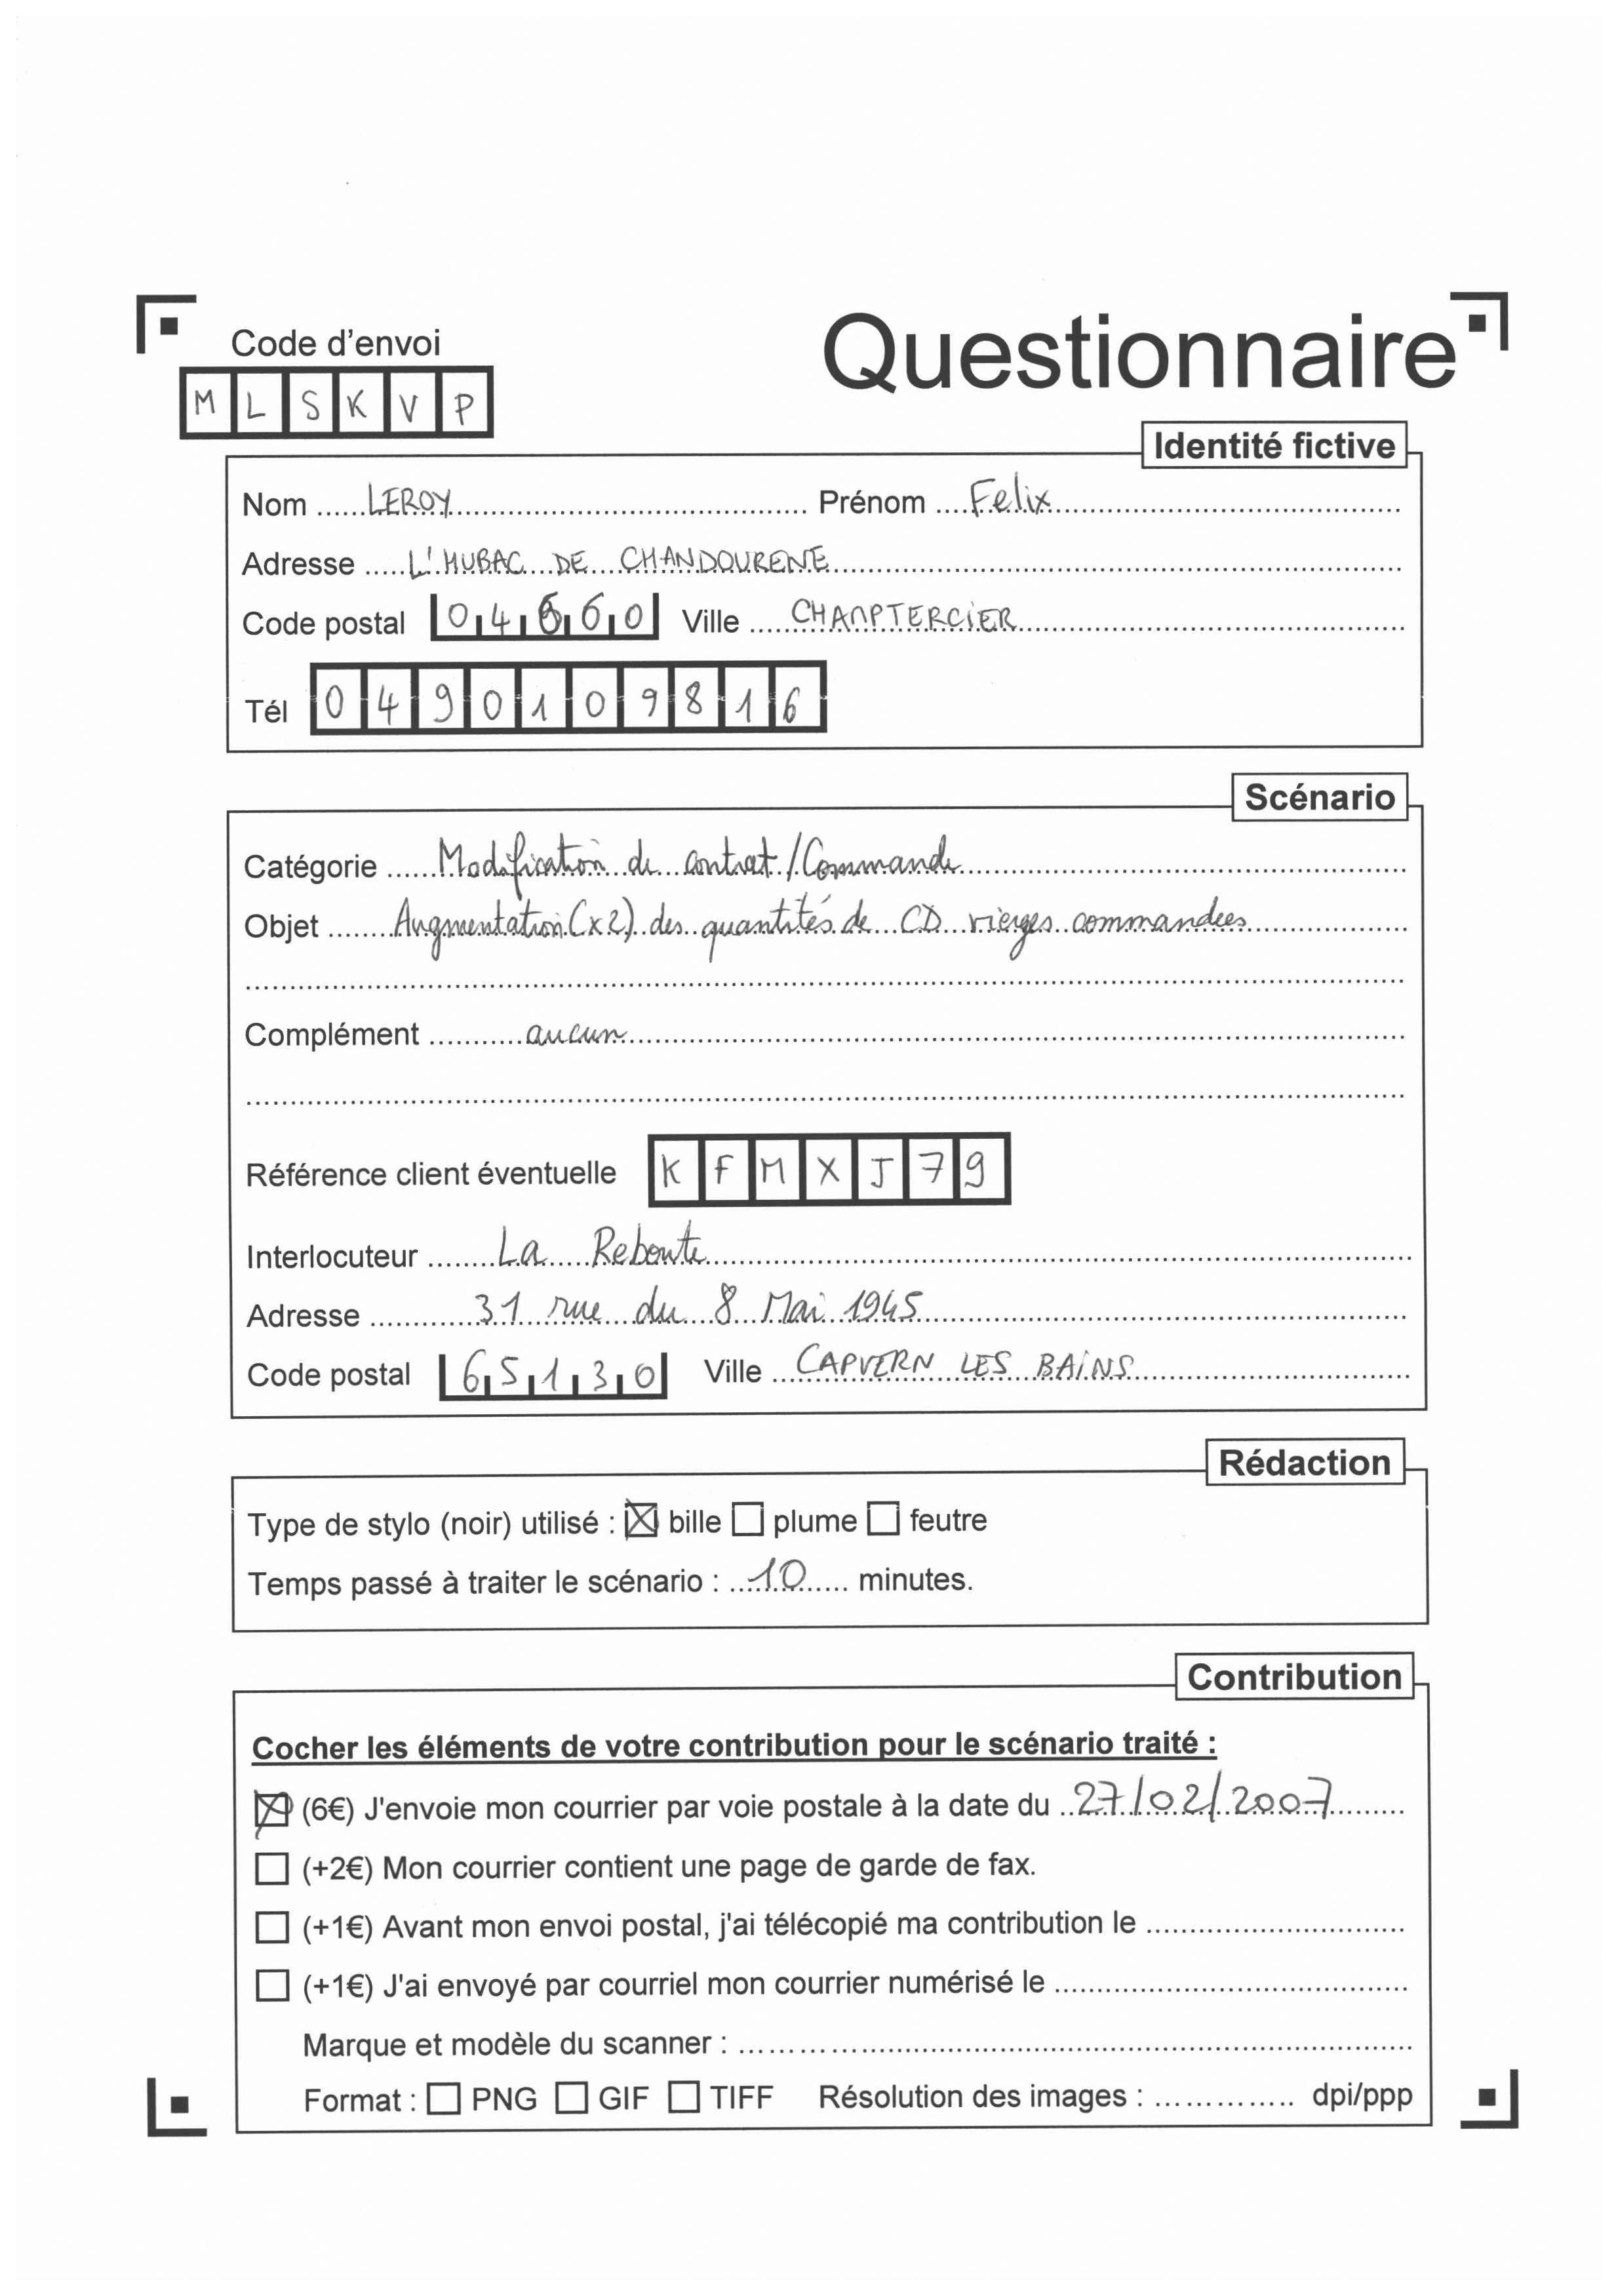 Code d'envoi
Questionnaire
M L S K V P
Identité fictive
Nom ......LEROY...... Prénom ....Felix......
Adresse .....L'HUBAC DE CHANDOURENE......
Code postal 04660 Ville .....CHAMPTERCIER......
Tél 0490109816
Scénario
Catégorie ......Modification de contrat/Commande......
Objet .......Augmentation (x2) des quantités de CD vierges commandées......
Complément ...........aucun......
Référence client éventuelle K F M X J 7 9
Interlocuteur .......La Reboute......
Adresse ...........31 rue du 8 Mai 1945......
Code postal 65130 Ville ....CAPVERN LES BAINS......
Rédaction
Type de stylo (noir) utilisé : ☒ bille ☐ plume ☐ feutre
Temps passé à traiter le scénario : ..10..... minutes.
Contribution
Cocher les éléments de votre contribution pour le scénario traité :
☒ (6€) J'envoie mon courrier par voie postale à la date du ..27/02/2007......
☐ (+2€) Mon courrier contient une page de garde de fax.
☐ (+1€) Avant mon envoi postal, j'ai télécopié ma contribution le ......
☐ (+1€) J'ai envoyé par courriel mon courrier numérisé le ......
Marque et modèle du scanner : ......
Format : ☐ PNG ☐ GIF ☐ TIFF Résolution des images : .............. dpi/ppp